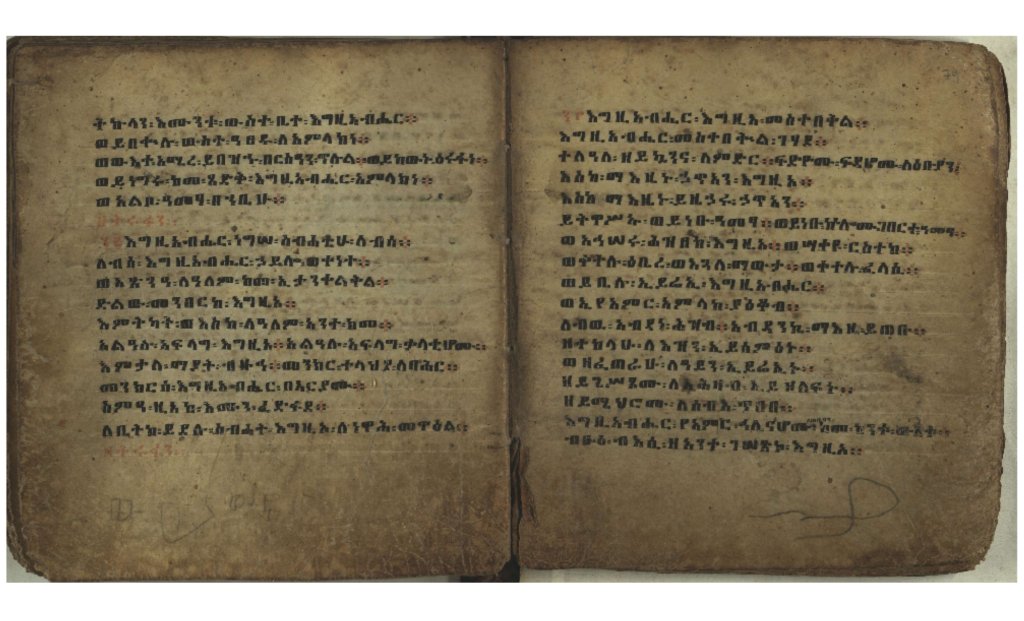 ትኩላን፡እሙንቱ፡ውስተ፡ቤተ፡እግዚአብሔር።
ወይበቍሉ፡ውስተ፡ዓፀዱ፡ለአምላክነ።
ወውእተ፡አሚረ፡ይበዝኁ፡በርስዓን፡ጥሉል። ወይከውኑ፡ዕሩፋነ።
ወይነግሩ፡ከመ፡ጽድቅ፡እግዚአብሔር፡አምላክነ።
ወአልቦ፡ዓመፃ፡በኀቤሁ።
እግዚአብሔር፡ነግሠ፡ስብሐቲሁ፡ለብሰ።
ለብሰ፡እግዚአብሔር፡ኃይለ፡ወቀነተ።
ወአጽንዓ፡ለዓለም፡ከመ፡ኢታንቀልቅል።
ድልው፡መንበርከ፡እግዚኦ።
እምትካት፡ወእስከ፡ለዓለም፡አንተ፡ከመ።
አልዓሉ፡አፍላግ፡እግዚኦ። አልዓሉ፡አፍላግ፡ቃላቲሆሙ።
እምቃለ፡ማያት፡ብዙኃ። መንክር፡ተላህያ፡ለባሕር።
መንክርሰ፡እግዚአብሔር፡በአርያሙ።
ስምዓ፡ዚአከ፡እሙን፡ፈድፋደ።
ለቤትከ፡ይደሉ፡ስብሐት፡እግዚኦ፡ለነዋሕ፡መዋዕል።
እግዚአብሔር፡እግዚአ፡መስተበቅል።
እግዚአብሔር፡መስተበቅል፡ገሃደ።
ተለዓለ፡ዘይኴንና፡ለምድር። ፍድዮሙ፡ፍዳሆሙ፡ለዕቡያን፡
እስከ፡ማእዜኑ፡ኃጥአን፡እግዚኦ።
እስከ፡ማእዜኑ፡ይዜኃሩ፡ኃጥአን።
ይትዋሥኡ፡ወይነቡ፡ዓመፃ። ወይነቡ፡ኵሎሙ፡ገበርተ፡ዓመፃ።
ወአኅሠሩ፡ሕዝበከ፡እግዚኦ። ወሣቀዩ፡ርስተከ።
ወቀተሉ፡ዕቤረ፡ወእጓለ፡ማውታ። ወቀተሉ፡ፈላሴ።
ወይቤሉ፡ኢይሬኢ፡እግዚአብሔር።
ወኢየአምር፡አምላከ፡ያዕቆብ።
ለብዉ፡አብዳነ፡ሕዝብ። አብዳንኬ፡ማእዜ፡ይጠቡ።
ዘተከላሁ፡ለእዝን፡ኢይሰምዕኑ።
ወዘፈጠራሁ፡ለዓይን፡ኢይሬኢኑ።
ዘይጌሥጾሙ፡ለአሕዛብ፡ኢይዘልፍኑ።
ዘይሜህሮሙ፡ለሰብእ፡ጥበበ።
እግዚአብሔር፡የአምር፡ሓሊናሆሙ፡ከመ፡ከንቱ፡ውእቱ።
ብፁዕ፡ብእሲ፡ዘአንተ፡ገሠጽኮ፡እግዚኦ።